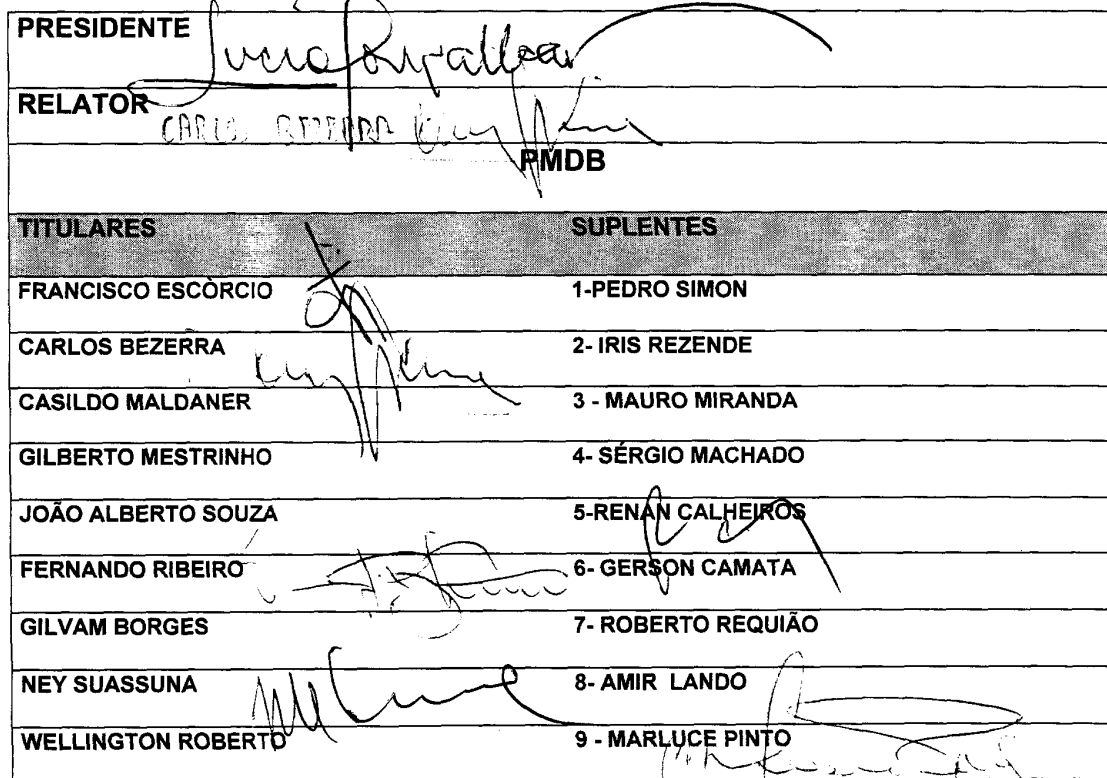 PRESIDENTE
RELATOR CARLOS BEZERRA
PMDB
TITULARES SUPLENTES
FRANCISCO ESCÒRCIO 1-PEDRO SIMON
CARLOS BEZERRA 2- IRIS REZENDE
CASILDO MALDANER 3 - MAURO MIRANDA
GILBERTO MESTRINHO 4- SÉRGIO MACHADO
JOÃO ALBERTO SOUZA 5-RENAN CALHEIROS
FERNANDO RIBEIRO 6- GERSON CAMATA
GILVAM BORGES 7- ROBERTO REQUIÃO
NEY SUASSUNA 8- AMIR LANDO
WELLINGTON ROBERTO 9 - MARLUCE PINTO